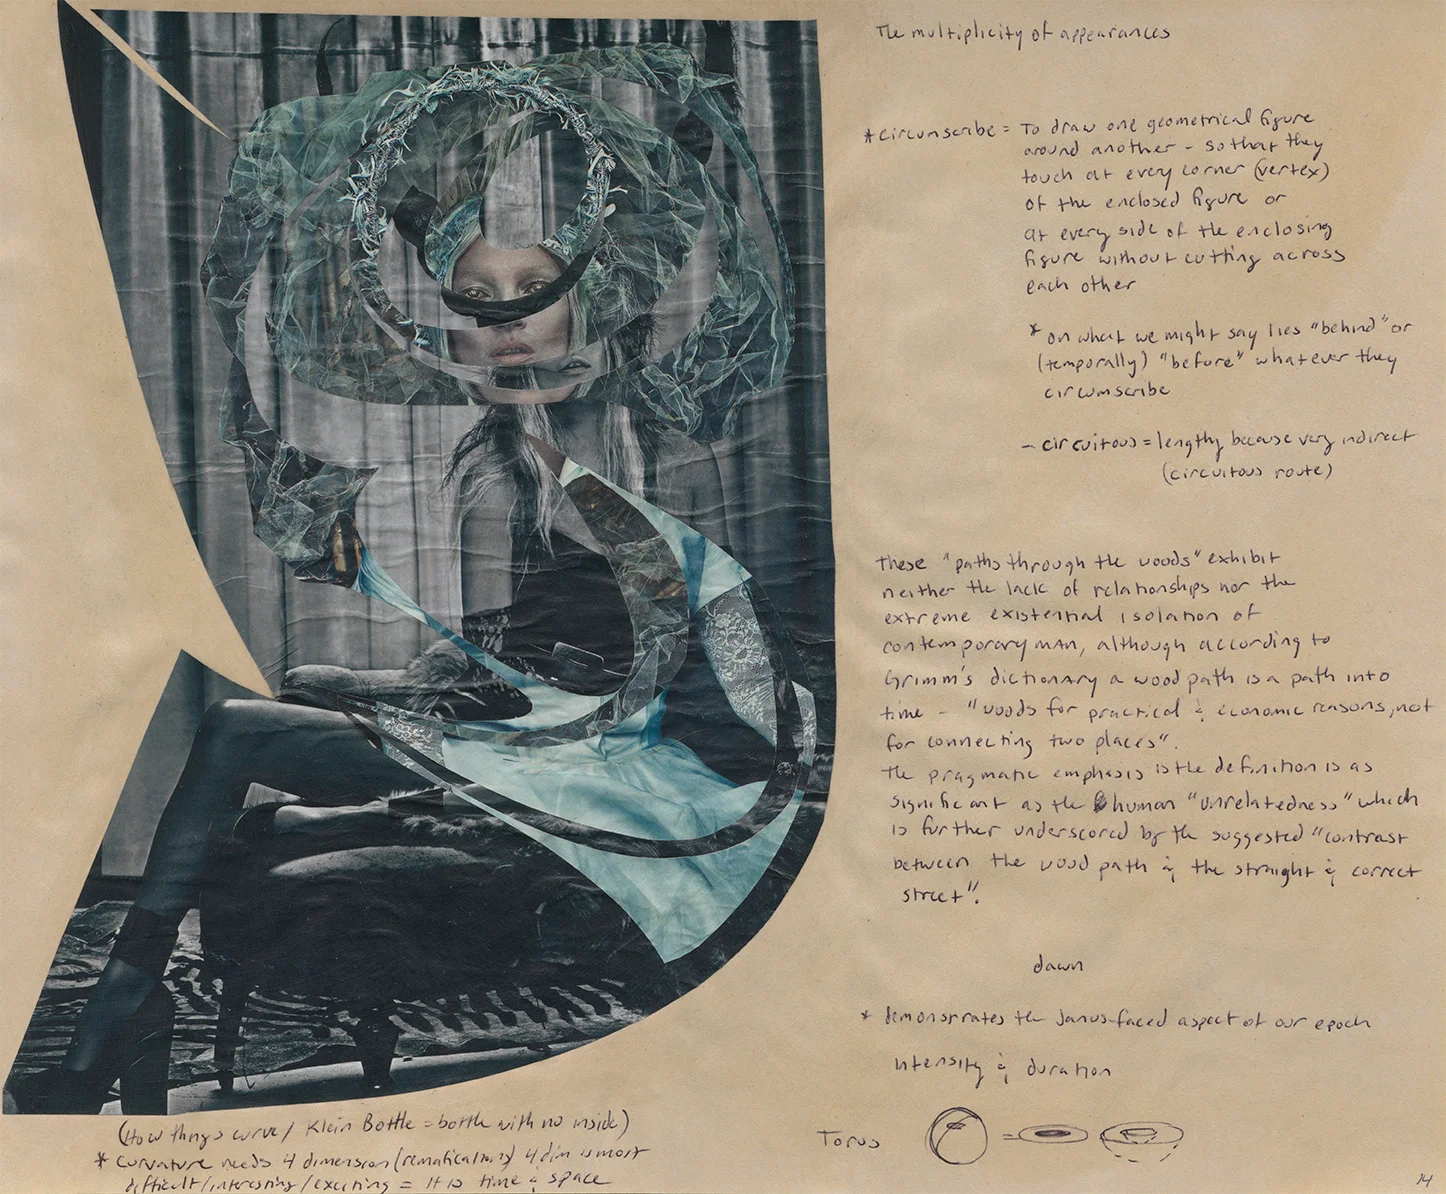 The multiplicity of appearances
* circumscribe = To draw one geometrical figure
around another - so that they
touch at every corner (vertex)
of the enclosed figure or
at every side of the enclosing
figure without cutting across
each other
* on what we might say lies "behind" or
(temporally) "before" whatever they
circumscribe
- circuitous = lengthy because very indirect
(circuitous route)
These "paths through the woods" exhibit
neither the lack of relationships nor the
extreme existential isolation of
contemporary man, although according to
Grimm's dictionary a wood path is a path into
time - "woods for practical & economic reasons, not
for connecting two places".
The pragmatic emphasis is the definition is as
significant as the human "unrelatedness" which
is further underscored by the suggested "contrast
between the wood path & the straight & correct
street".
dawn
* demonstrates the Janus-faced aspect of our epoch
intensity & duration
Torus
(How things curve / Klein Bottle = bottle with no inside)
* curvature needs 4 dimension ( 4 dim is most
difficult/interesting/exciting = it is time & space
14